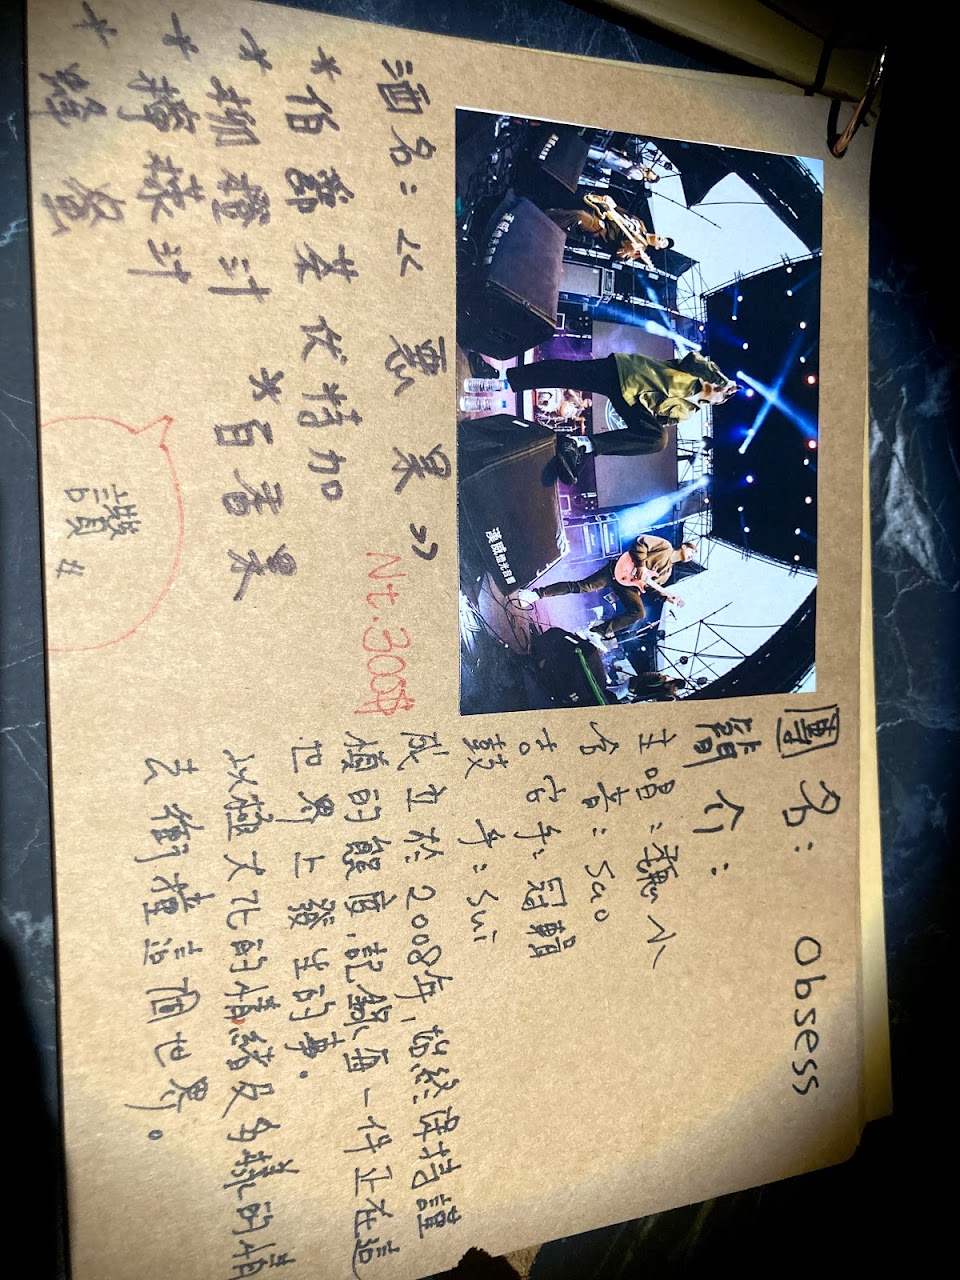 團名: Obsess
簡介:
主唱:聽小
合音: Sao
吉它手:冠賴
鼓手: Sui
成立於2008年,始終保持謹
慎的態度.記錄每一件正在這
世界上發生的事.
以極大化的情緒及多樣的情
去衝撞這個世界。
漢威燈光音響
酒名:以惡果"
Nt.300$
*伯爵茶伏特加
*柳橙汁
*百香果
*檸檬汁
*蜂蜜
讚#